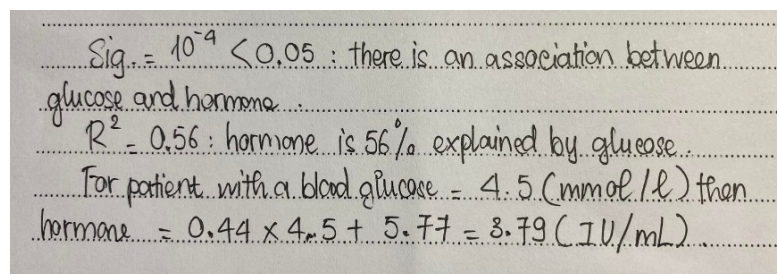 Sig. = 10⁻⁴ < 0.05 : there is an association between
glucose and hormone.
R² = 0.56 : hormone is 56% explained by glucose.
For patient with a blood glucose = 4.5 (mmol/l) then
hormone = 0.44 x 4.5 + 5.77 = 3.79 (IU/mL).